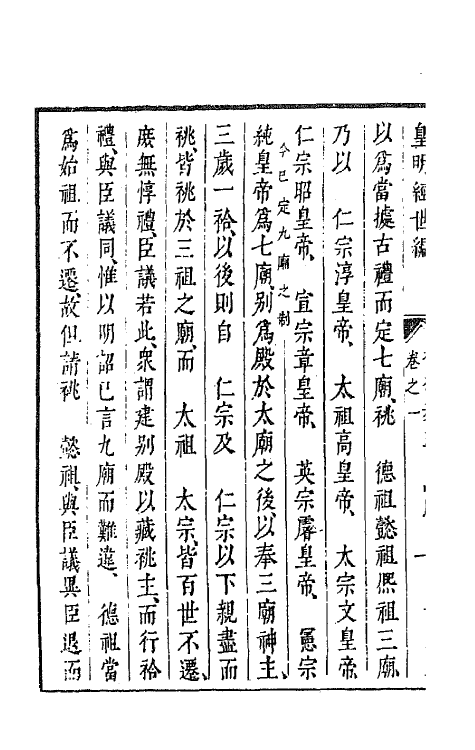 皇明經世編
卷之一
以爲當據古禮而定七廟、祧 德祖懿祖熙祖三廟、
乃以 仁宗淳皇帝、 太祖高皇帝、 太宗文皇帝、
仁宗昭皇帝、 宣宗章皇帝、 英宗睿皇帝、 憲宗
今已定九廟之制
純皇帝爲七廟、别爲殿於太廟之後、以奉三廟神主、
三歲一祫、以後則自 仁宗及 仁宗以下親盡而
祧、皆祧於三祖之廟、而 太祖 太宗、皆百世不遷、
庻無悖禮、臣議若此、衆謂建别殿以藏祧主、而行祫
禮、與臣議同、惟以明詔已言九廟而難違、 德祖當
爲始祖而不遷、故但請祧 懿祖、與臣議異臣退而